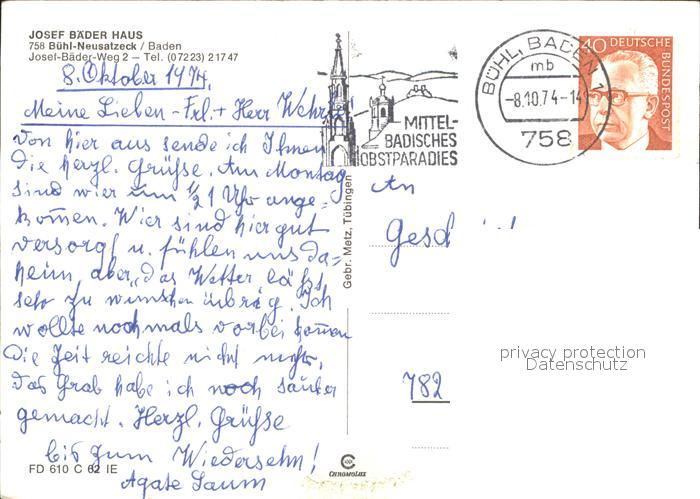 JOSEF BÄDER HAUS
758 Bühl-Neusatzeck / Baden
Josef-Bäder-Weg 2 – Tel. (07223) 21747
8. Oktober 1974.
Meine Lieben - Frl. + Herr
Von hier aus sende ich Ihnen
die herzl. Grüße. Am Montag
sind wier um ½ 1 Uhr ange=
komen. Wier sind hier gut
versorgt u. fühlen uns da=
heim, aber das Wetter läßt
sehr zu wünschen übrig. Ich
wollte nochmals vorbei komen
die Zeit reichte nicht mehr,
das Grab habe ich noch sauber
gemacht. Herzl. Grüße
bis zum Wiedersehn!
Agate Saum
FD 610 C 62 IE
Gebr. Metz, Tübingen
CHROMOLUX
MITTEL-
BADISCHES
OBSTPARADIES
BÜHL, BADEN 1
mb
-8.10.74-14
758
40 DEUTSCHE
BUNDESPOST
An
782
privacy protection
Datenschutz